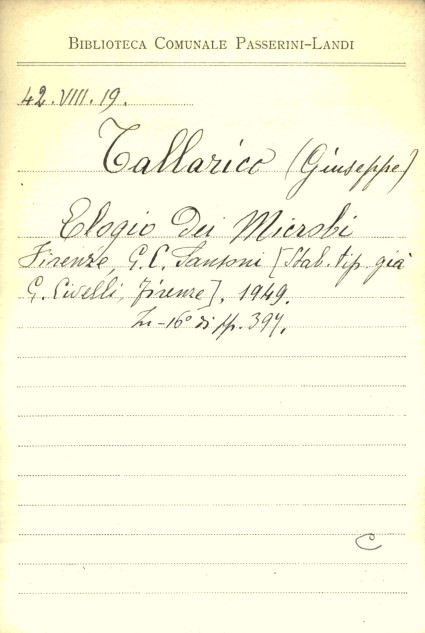 BIBLIOTECA COMUNALE PASSERINI-LANDI
42.VIII.19.
Tallarico (Giuseppe)
Elogio Dei Microbi
Firenze, G. C. Sansoni [Stab. tip. già
G. Civelli, Firenze], 1949.
In-16° di pp. 397.
C